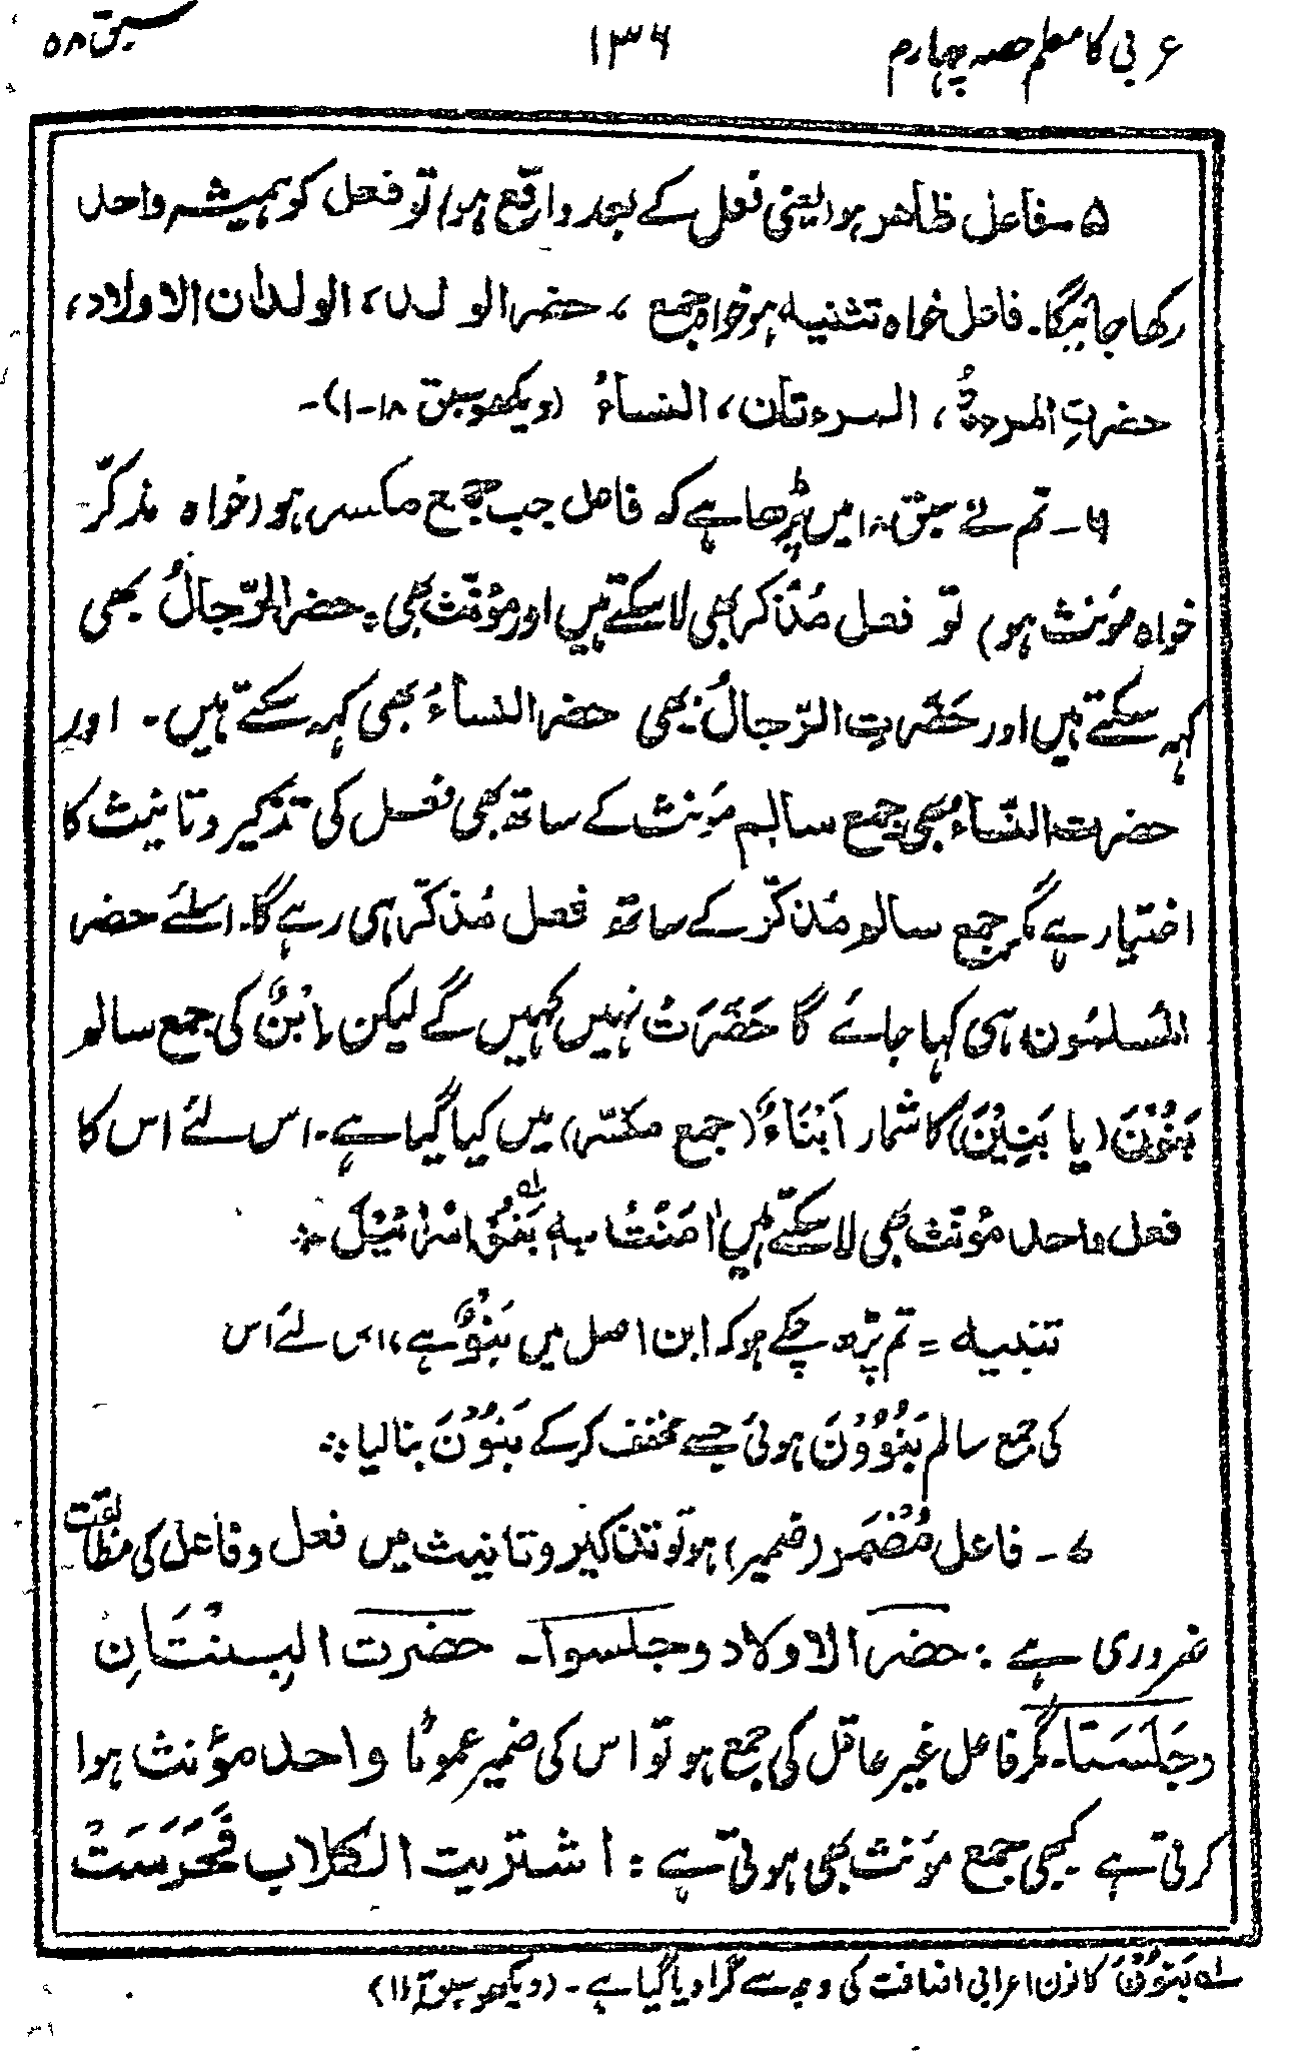 عربی کا معلم حصہ چہارم
۱۳۶
سبق ۵۸
۵۔ فاعل ظاھر ہو (یعنی فعل کے بعد واقع ہو) تو فعل کو ہمیشہ واحد
رکھا جائیگا۔ فاعل خواہ تثنیہ ہو خواہ جمع ، حضر الولد، الولدان الاولاد،
حضرتِ المرءۃُ ، المرءتان، النساءُ (دیکھو سبق ۱۸-۱)۔
۶۔ تم نے سبق ۱۸ میں پڑھا ہے کہ فاعل جب جمع مکسر ہو (خواہ مذکرّ
خواہ مؤنث ہو) تو فعل مُذکر بھی لا سکتے ہیں اور مؤنّث بھی: حضر الرّجالُ بھی
کہہ سکتے ہیں اور حَضَرتِ الرّجالُ بھی حضر النساءُ بھی کہہ سکتے ہیں۔ اور
حضرت النّساءُ بھی جمع سالم مؤنث کے ساتھ بھی فعل کی تذکیر و تانیث کا
اختیار ہے مگر جمع سالم مُذکّر کے ساتھ فعل مُذکّر ہی رہے گا۔ اسلئے حضر
المُسلمُون ہی کہا جائے گا حَضَرَتْ نہیں کہیں گے لیکن اِبْنٌ کی جمع سالم
بَنُوْنَ (یا بَنِیْنَ) کا شمار اَبْنَاءٌ (جمع مکسّر) میں کیا گیا ہے۔ اس لئے اس کا
فعل واحد مؤنّث بھی لا سکتے ہیں اٰمَنَتْ بہٖ بَنُوْ اِسْرَائِیْلَ ؞ لہ
تنبیہ = تم پڑھ چکے ہو کہ ابن اصل میں بَنَوٌ ہے، اس لئے اس
کی جمع سالم بَنَوُوْنَ ہوئی جسے مخفف کرکے بَنُوْنَ بنا لیا ؞
۷۔ فاعل مُضْمَر (ضمیر) ہو تو تذکیر و تانیث میں فعل و فاعل کی مطابقت
ضروری ہے : حضر الاولاد وجلسوا۔ حضرت البِنْتَانِ
وجَلَسَتَا۔ مگر فاعل غیر عاقل کی جمع ہو تو اس کی ضمیر عمومًا واحد مؤنث ہوا
کرتی ہے کبھی جمع مؤنث بھی ہوتی ہے : اشتریت الکلاب فَحَرَسَتْ
لہ بَنُوْنَ کا نون اعرابی اضافت کی وجہ سے گرا دیا گیا ہے۔ (دیکھو سبق ۱۱)